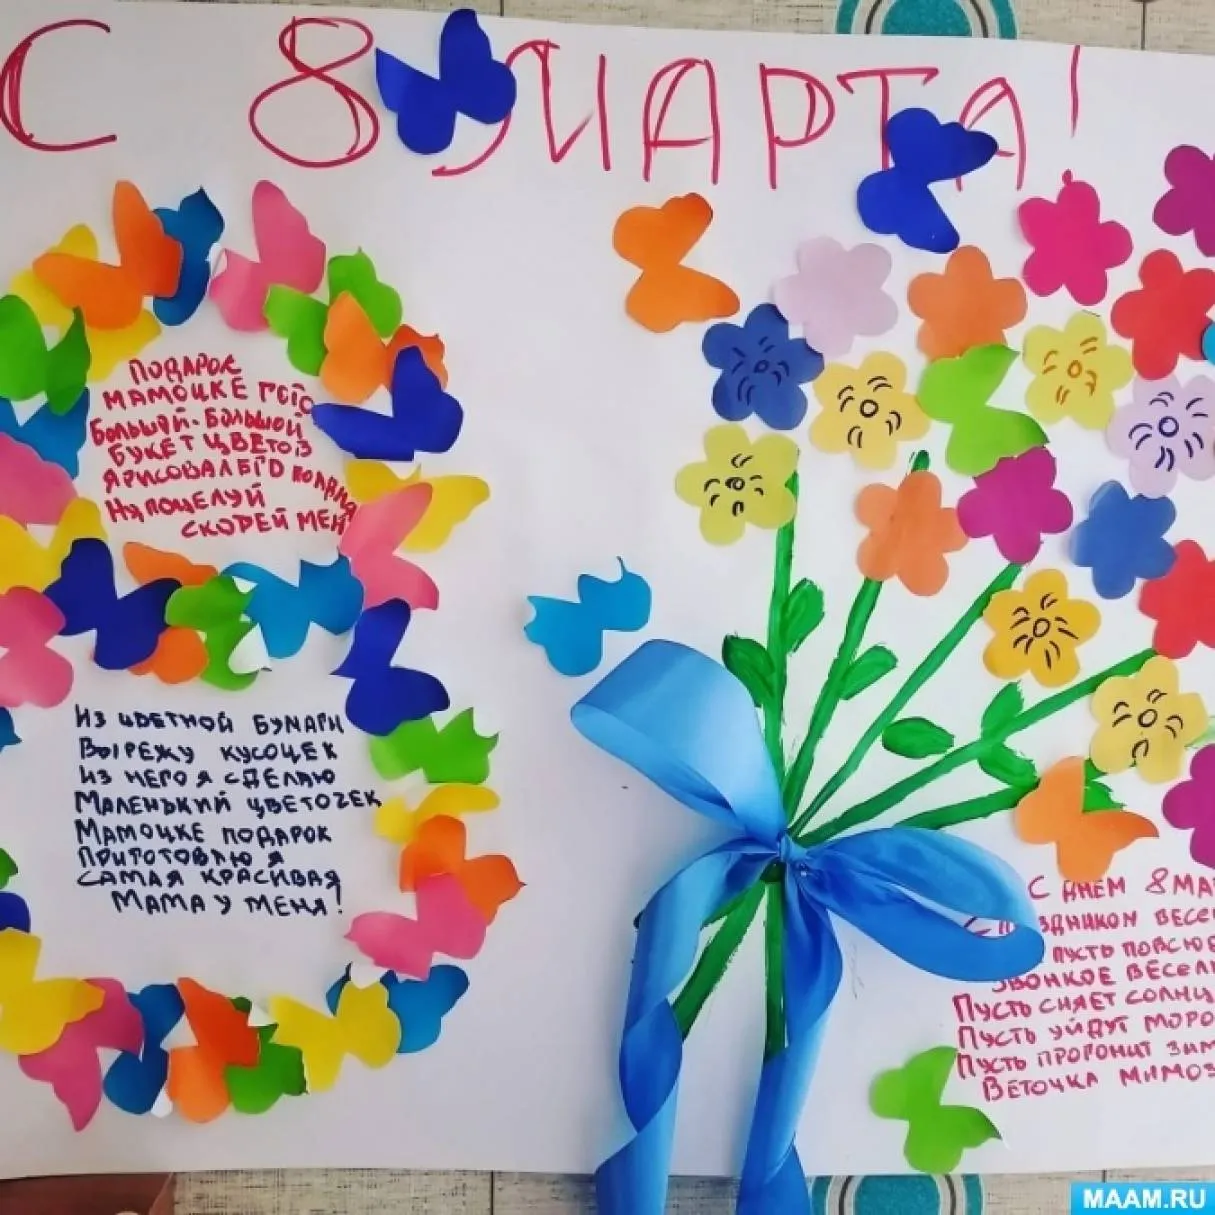 С 8 МАРТА!
ПОДАРОК
МАМОЧКЕ
БОЛЬШОЙ-БОЛЬШОЙ
БУКЕТ ЦВЕТОВ
Я РИСОВАЛ ЕГО
НУ, ПОЦЕЛУЙ
СКОРЕЙ МЕН
ИЗ ЦВЕТНОЙ БУМАГИ
ВЫРЕЖУ КУСОЧЕК
ИЗ НЕГО Я СДЕЛАЮ
МАЛЕНЬКИЙ ЦВЕТОЧЕК
МАМОЧКЕ ПОДАРОК
ПРИГОТОВЛЮ Я
САМАЯ КРАСИВАЯ
МАМА У МЕНЯ!
С ДНЕМ 8 МА
ВЕСЕ
ПУСТЬ ПОВСЮ
ЗВОНКОЕ ВЕСЕЛ
ПУСТЬ СИЯЕТ СОЛНЦ
ПУСТЬ УЙДУТ МОРО
ПУСТЬ ПРОГОНИТ ЗИМ
ВЕТОЧКА МИМОЗ
MAAM.RU